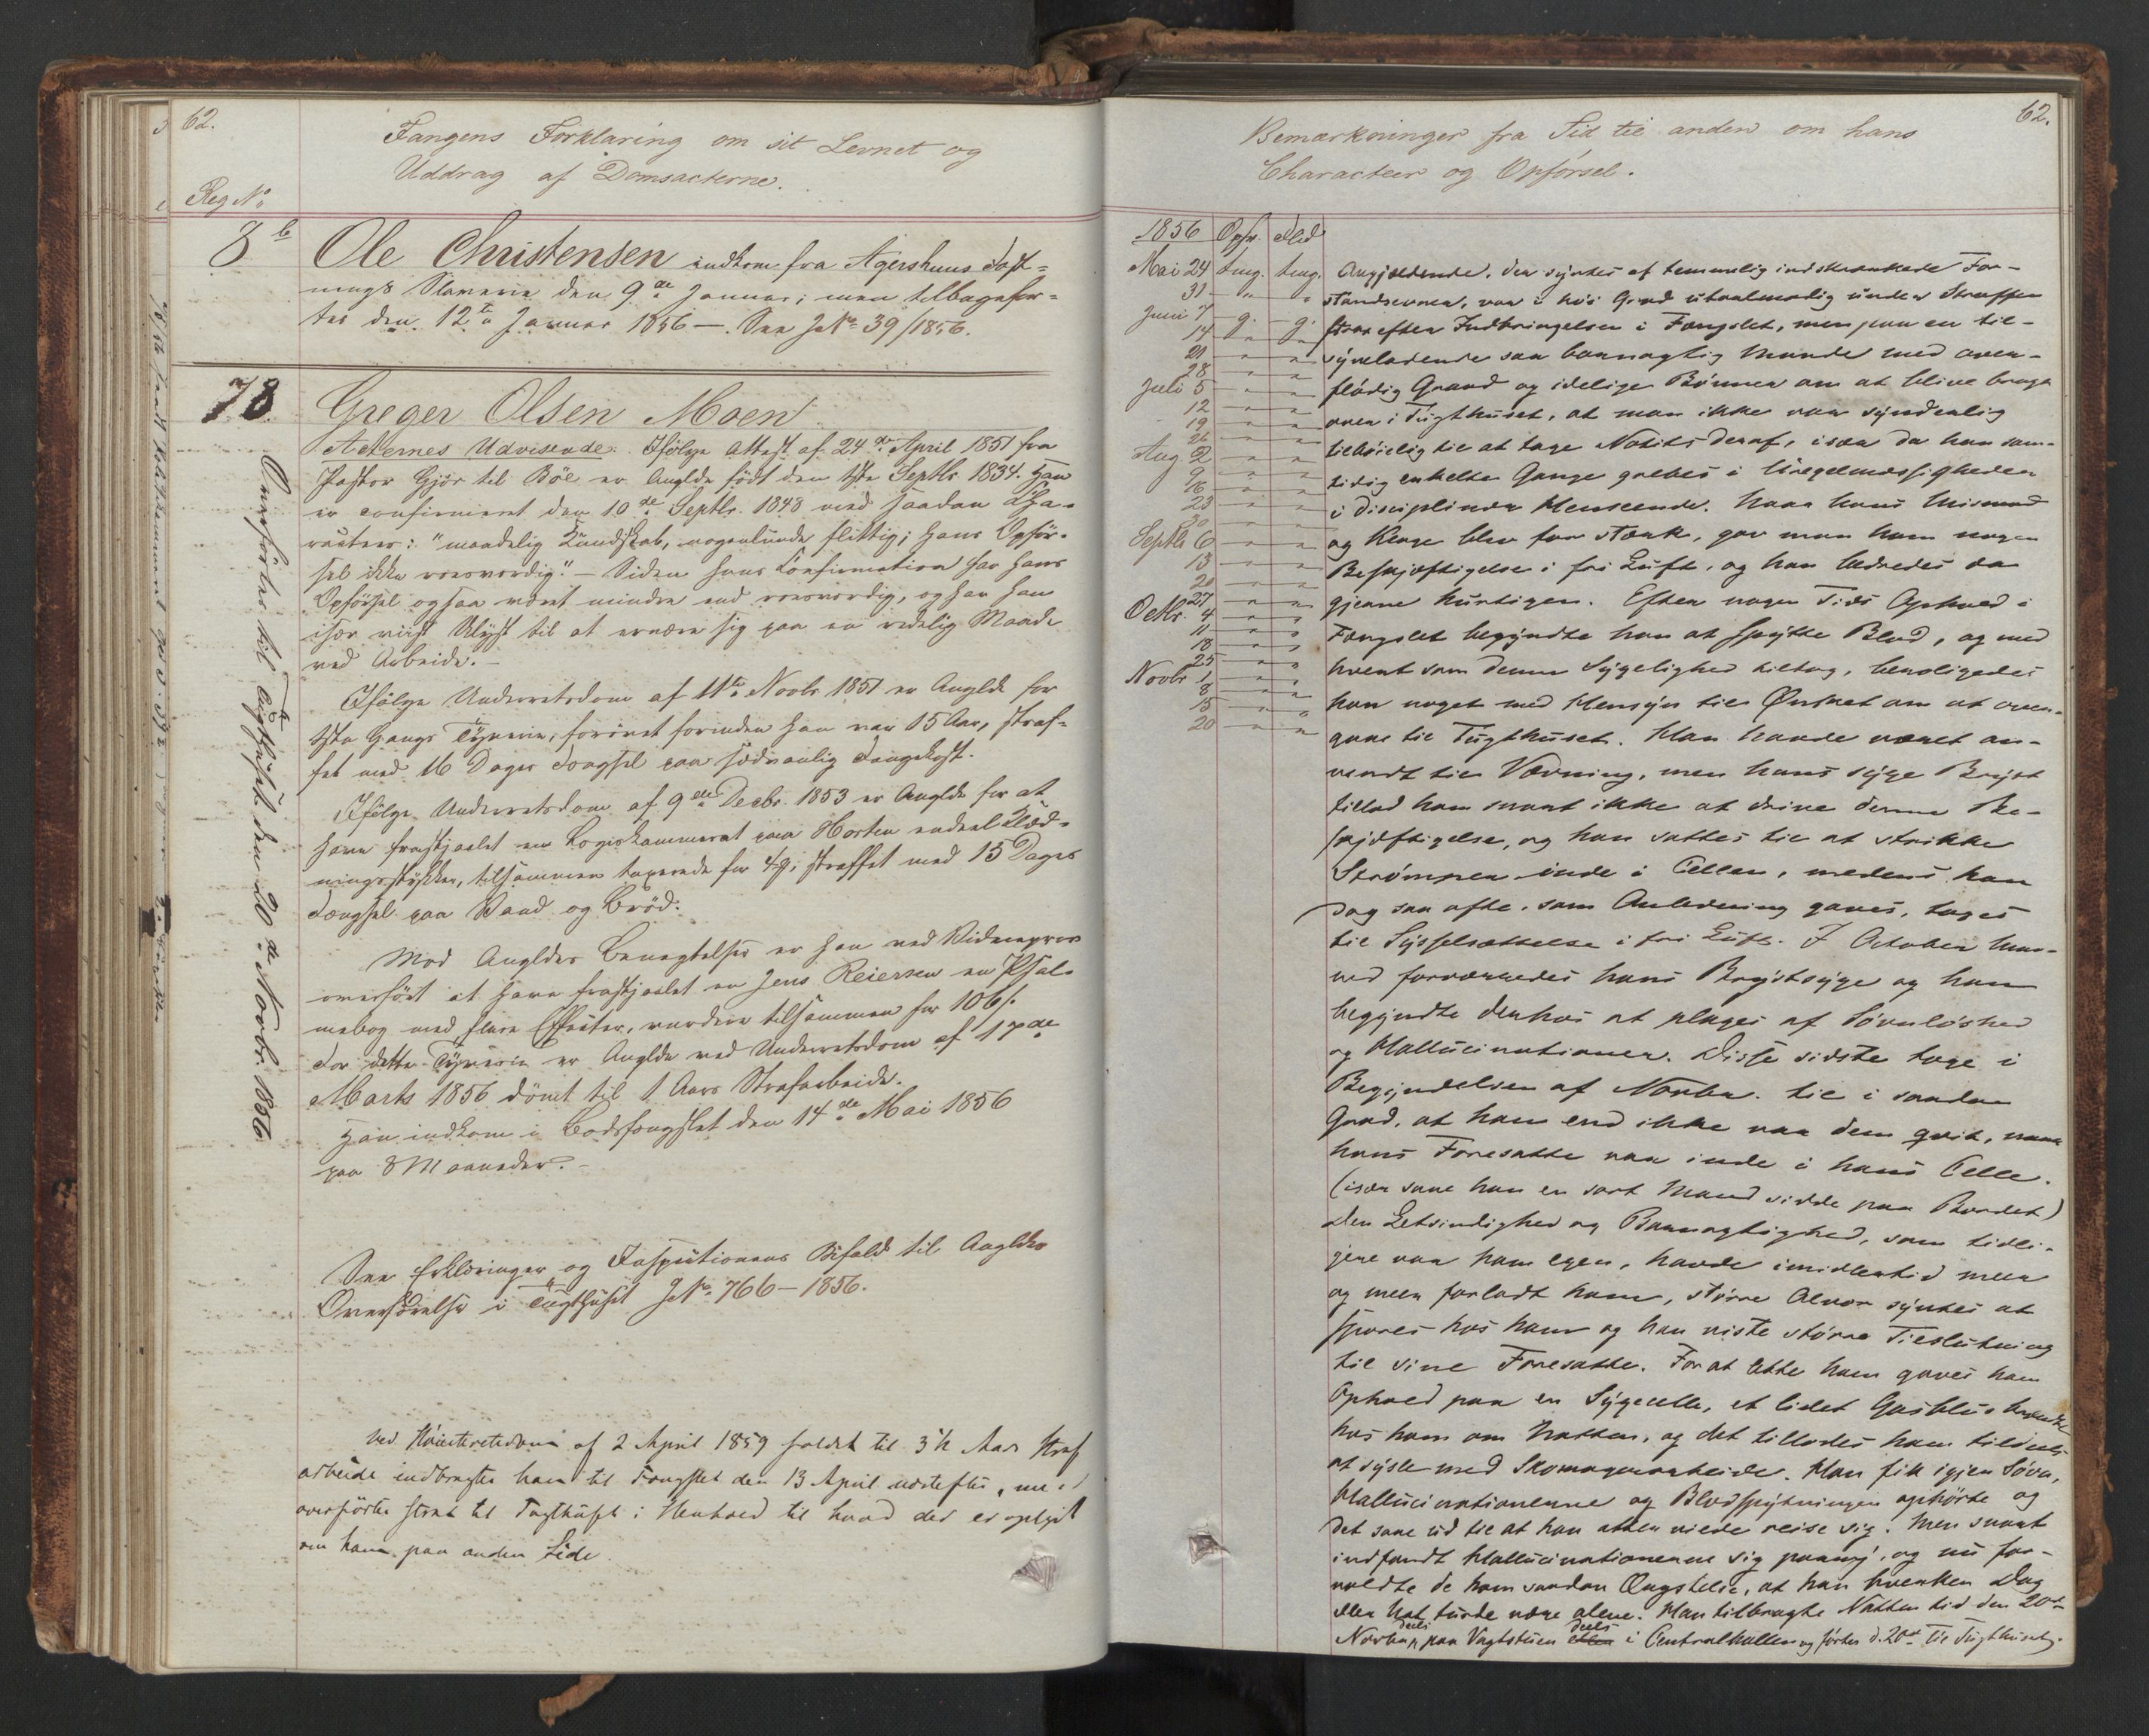 62.
Fangens Forklaring om sit Levnet og
Uddrag af Domsacterne.
Reg No
8b
Ole Christensen indkom fra Agershuus Fæst-
nings Slaverie den 9de Januar; men tilbageför-
tes den 12te Januar 1856 —. See J No 39/1856.
78.
Greger Olsen Moen
Acternes Udvisende. Ifölge Attest af 24de April 1851 fra
Pastor Gjör til Böe er Anglde födt den 1ste Septbr 1834. Han
er confirmeret den 10de Septbr. 1848 med saadan Cha-
racteer: "maadelig Kundskab, nogenlunde flittig; hans Opför-
sel ikke roesværdig." — Siden hans Confirmation har hans
Opförsel ogsaa været mindre end roesværdig, og har han
især viist Ulyst til at ernære sig paa en redelig Maade
ved Arbeide. —
Ifölge Underretsdom af 11te Novbr 1851 er Anglde for
1ste Gangs Tyverie, forövet forinden han var 15 Aar, straf-
fet med 16 Dages Fængsel paa sædvanlig Fangekost.
Ifölge Underretsdom af 9de Decbr. 1853 er Anglde for at
have frastjaalet en Logiskammerat paa Horten endeel Klæd-
ningsstykker, tilsammen taxerede for 4 , straffet med 15 Dages
Fængsel paa Vand og Bröd.
Mod Angldes Benægtelse er han ved Vidneprov
overfört at have frastjaalet en Jens Reiersen en Psal-
mebog med flere Effecter, vurderet tilsammen for 106 s.
For dette Tyverie er Anglde ved Underretsdom af 17de
Marts 1856 dömt til 1 Aars Strafarbeide.
Han indkom i Bodsfængslet den 14de Mai 1856
paa 8 Maaneder. —
See Erklæringer og Inspectionens Befaled til Angldes
Oversendelse i Tugthuset J No 766 – 1856.
Ved Höiesteretsdom af 2 April 1859 fældet til 3½ Aars Straf
arbeide indbragtes han til Fængslet den 13 April næstefter, men
overförtes strax til Tugthuset i Henhold til hvad der er oplyst
om ham paa anden Side.
Overförtes til Tugthuset den 20de Novbr. 1856
62.
Bemærkninger fra Tid til anden om hans
Characteer og Opförsel.
1856 Opfr. Flid
Mai 24 tmg. tmg.
31 " "
Juni 7
14 g. g.
21 " "
28 " "
Juli 5 " "
12 " "
19 " "
26 " "
Aug 2 " "
9 " "
16 " "
23 " "
30 " "
Septbr 6 " "
13 " "
20 " "
27 " "
Octbr. 4 " "
11 " "
18 " "
25 " "
Novbr 1 " "
8 " "
15 " "
20 " "
Angjældende, der syntes af temmelig indskrænkede For-
standsevner, var i höi Grad utaalmodig under Straffen
strax efter Indbringelsen i Fængslet, men paa en til-
syneladende saa barnagtig Maade med over-
flödig Graad og idelige Bönner om at blive bragt
over i Tugthuset, at man ikke var synderlig
tilböielig til at tage Notits deraf, især da han sam-
tidig enkelte Gange grebes i Uregelmæssigheder
i disciplinær Henseende. Naar hans Mismod
og Klage blev for stærk, gav man ham nogen
Beskjæftigelse i fri Luft, og han bedredes da
gjerne hurtigen. Efter nogen Tids Ophold i
Fængslet begyndte han at spytte Blod, og med
hvert som denne Sygelighed tiltog, beroligedes
han noget med Hensyn til Önsket om at over-
gaae til Tugthuset. Han havde været an-
vendt til Vævning, men hans syge Bryst
tillod ham snart ikke at drive denne Be-
skjæftigelse, og han sattes til at strikke
Strömper inde i Cellen, medens han
dog saa ofte, som Anledning gaves, toges
til Sysselsættelse i fri Luft. I October Maa-
ned forværredes hans Brystsyge og han
begyndte derhos at plages af Sövnlöshed
og Hallucinationer. Disse sidste toge i
Begyndelsen af Novbr. til i saadan
Grad, at han end ikke var dem qvit, naar
hans Foresatte var inde i hans Celle.
(især saae han en sort Mand sidde paa Bordet)
Den Letsindighed og Barnagtighed, som tidli-
gere var ham egen, havde imidlertid meer
og meer forladt ham, större Alvor syntes at
spores hos ham og han viste större Tilslutning
til sine Foresatte. For at lette ham gaves ham
Ophold paa en Sygecelle, et lidet Gasblus brændte
hos ham om Natten, og det tillodes ham tildeels
at sysle med Skomagerarbeide. Han fik igjen Sövn,
Hallucinationerne og Blodspytningen ophörte og
det saae ud til at han atter vilde reise sig. Men snart
indfandt Hallucinationerne sig paany, og nu for-
voldte de ham saadan Ængstelse, at han hverken Dag
eller Nat turde være alene. Han tilbragte Natten til den 20de
Novber deels paa Vagtstuen deels i Centralhallen og förtes d. 20de til Tugthuset.